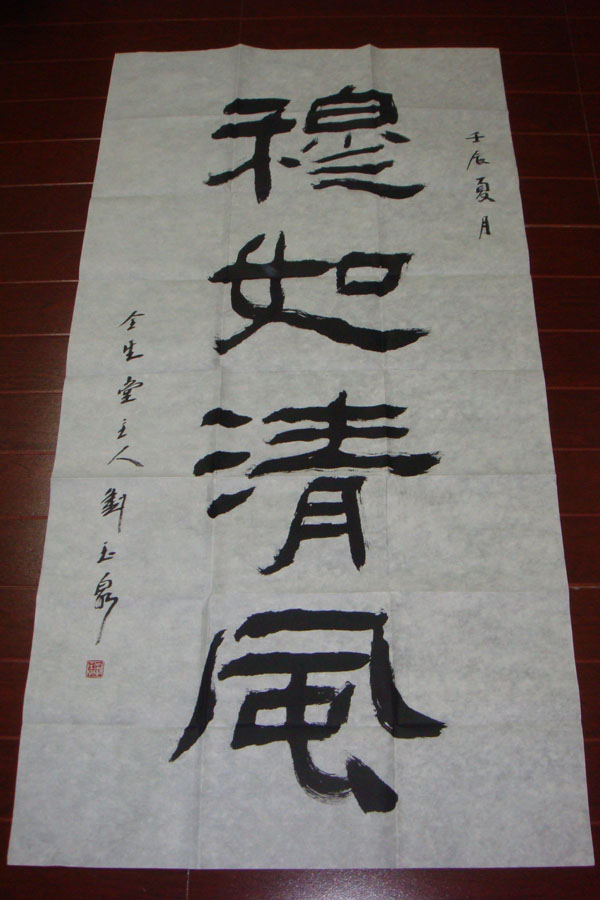 壬辰夏月
穆如清风
全生堂主人劉玉泉